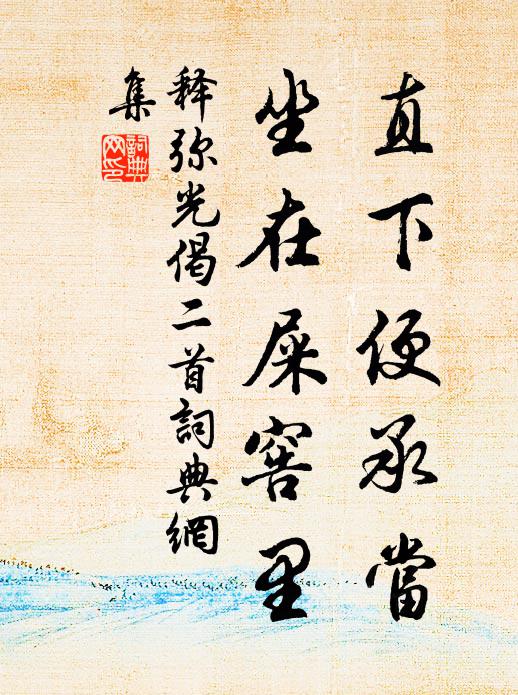 直下便承當
坐在屎窖里
释弥光偈二首詞典網
集
詞典
网印